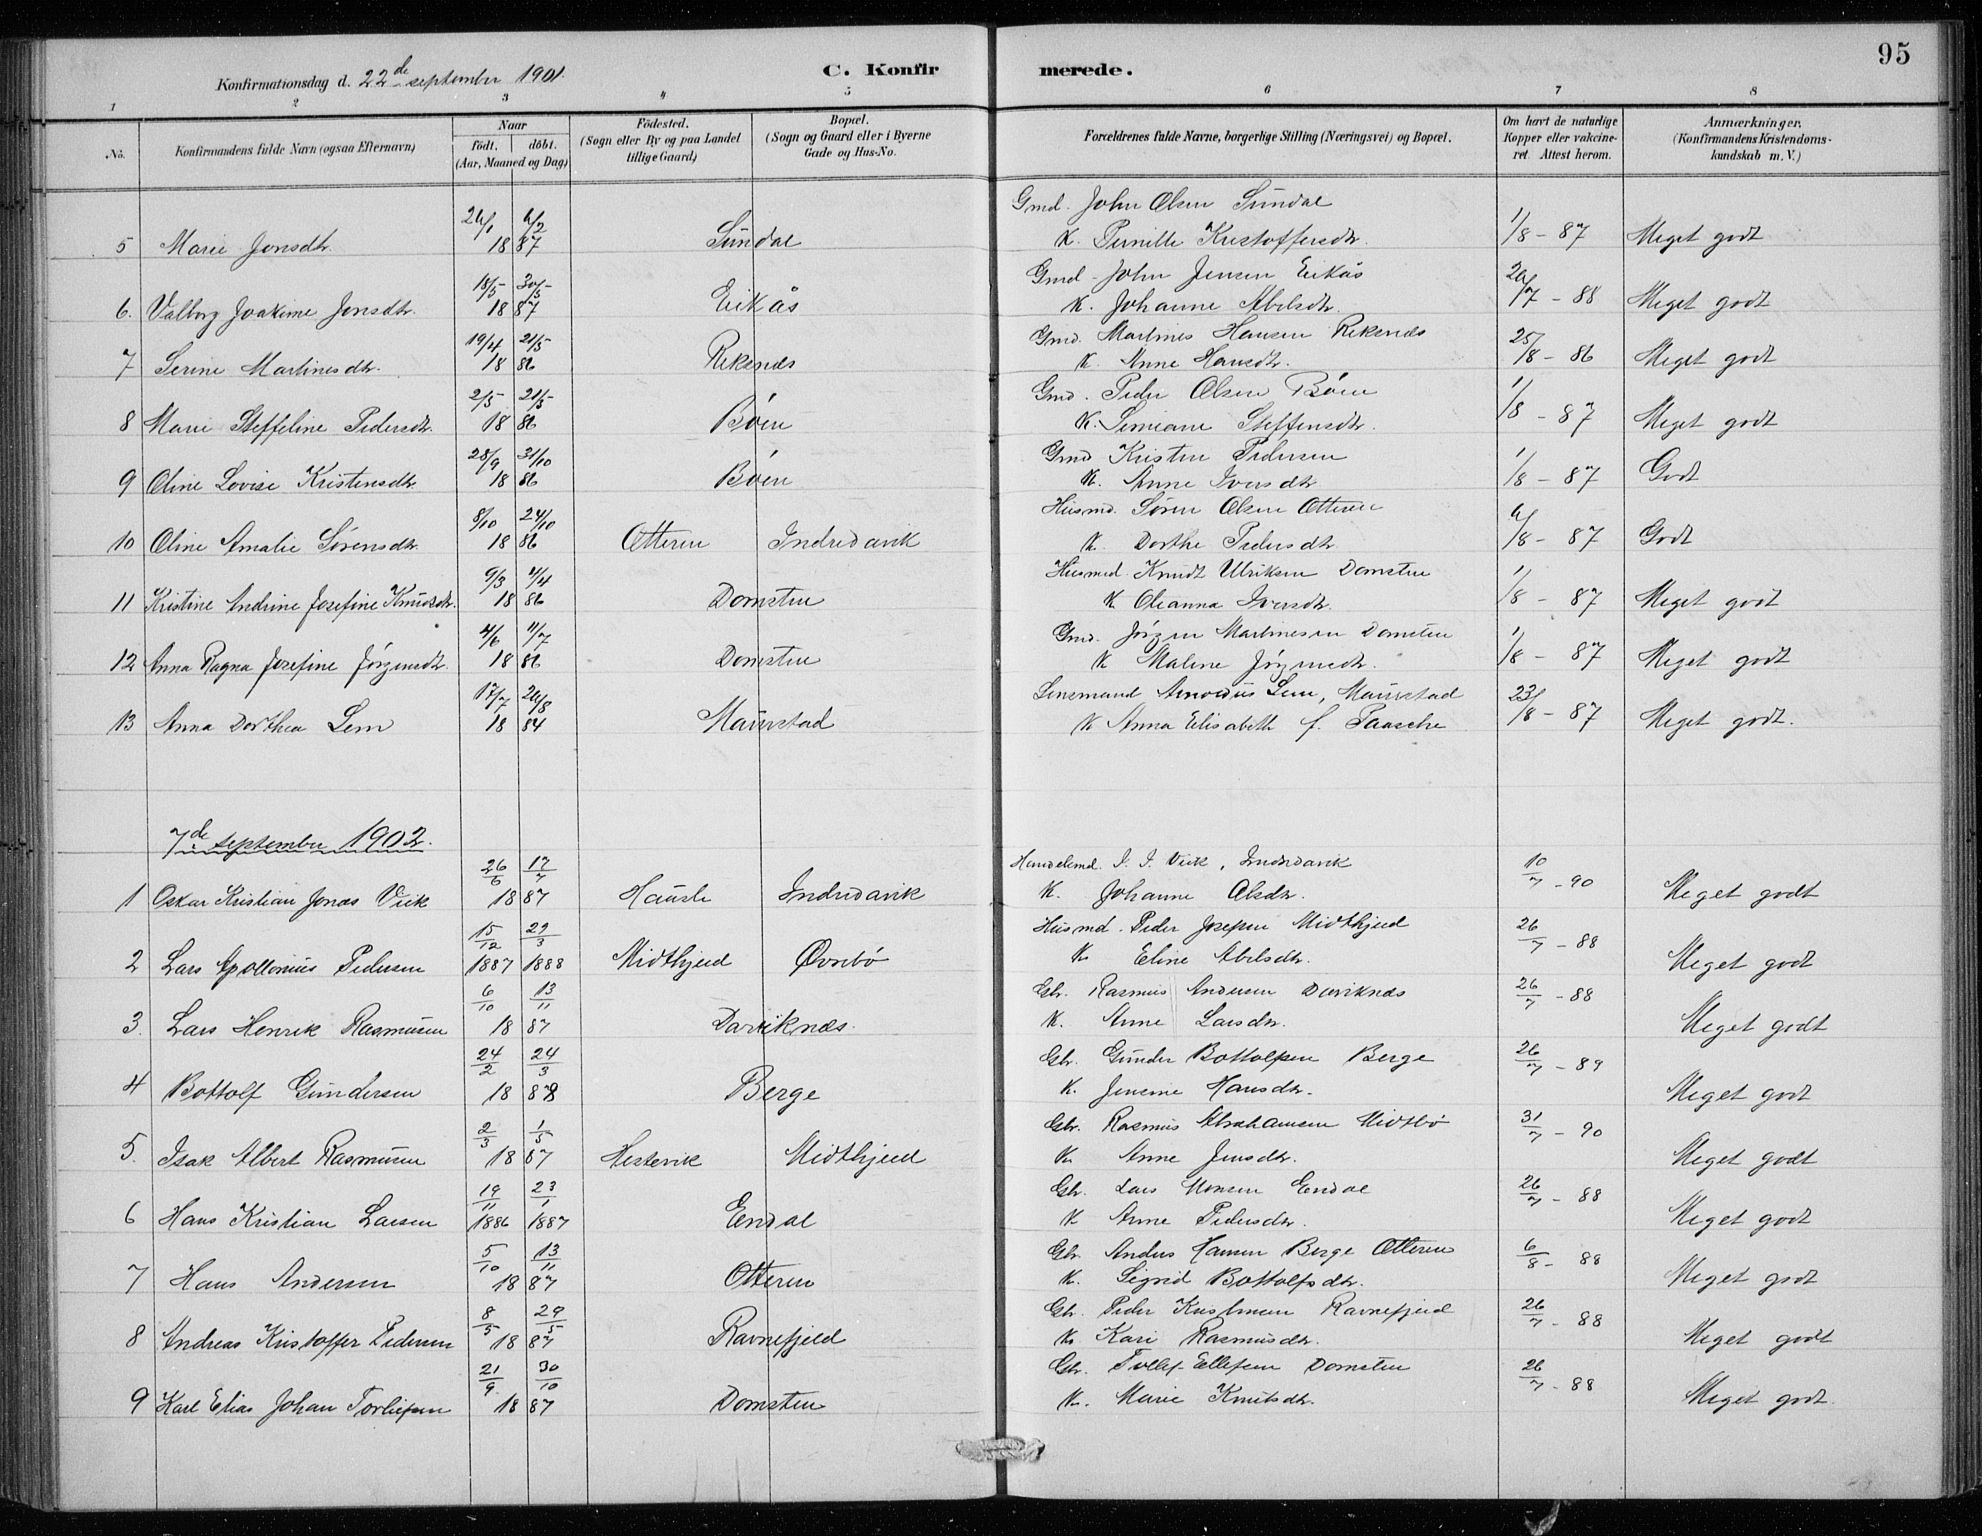 95
Konfirmationsdag d. 22de september 1901.
C. Konfirmerede.
1 2 3 4 5 6 7 8
No.
Konfirmandens fulde Navn (ogsaa Efternavn)
Naar
födt. döbt.
(Aar, Maaned og Dag)
Födested.
(Sogn eller By og paa Landet
tillige Gaard)
Bopæl.
(Sogn og Gaard eller i Byerne
Gade og Hus-No.
Forældrenes fulde Navne, borgerlige Stilling (Næringsvei) og Bopæl.
Om havt de naturlige
Kopper eller vakcine-
ret. Attest herom.
Anmærkninger.
(Konfirmandens Kristendoms-
kundskab m. V.)
Gmd. John Olsen Sundal
5 Marie Jonsdtr. 18 87 Sundal K. Pernille Kristoffersdtr. 1/8 - 87 Meget godt
18/5 30/5 Gmd. John Jensen Eikås
6. Valborg Joakime Jonsdtr. 18 87 Eikås K. Johanne Abelsdtr. /7 - 88 Meget godt
19/4 21/5 Gmd. Martines Hansen Reksnæs
7 Serine Martinesdtr. 18 86 Reksnæs K. Anne Hansdtr. 25/8 - 86 Meget godt
2/5 21/5 Gmd. Peder Olsen Böen
8 Marie Steffeline Pedersdtr. 18 86 Böen K. Simiane Steffensdtr. 1/8 - 87 Meget godt
28/9 31/10 Gmd Kristen Pedersen
9 Oline Lovise Kristensdtr. 18 86 Böen K. Anne Iversdtr 1/8 - 87 Godt
8/10 24/10 Husmd. Sören Olsen Otteren
10 Oline Amalie Sörensdtr. 18 86 Otteren Indredavik K. Dorthe Pedersdtr /8 - 87 Godt
9/3 4/4 Husmd. Knudt Ulriksen Domsten
11 Kristine Andrine Josefine Knudsdtr. 18 86 Domsten K. Oleanna Iversdtr. 1/8 - 87 Meget godt
4/6 11/7 Gmd. Jörgen Martinesen Domsten
12 Anna Ragna Josefine Jörgensdtr. 18 86 Domsten K Maline Jörgensdtr. 1/8 - 87 Meget godt
17/7 /8 Lensmand Arnoldus Lem, Maurstad
13 Anna Dorthea Lem 18 84 Maurstad K Anna Elisabeth f. Paasche 23/8 - 87 Meget godt.
7de september 1902.
26/6 17/7 Handelsmd. J. J. Viik, Indredavik
1 Oskar Kristian Jonas Viik 18 87 Hausle Indredavik K. Johanne Olsdtr. 10/7 - 90 Meget godt
15/12 29/3 Husmd. Peder Josefsen Midthjeld
2 Lars Apollonius Pedersen 1887 1888 Midthjeld Övrebö K. Eline Abelsdtr. 26/7 - 88 Meget godt
6/10 13/11 Gbr. Rasmus Andersen Daviknæs
3. Lars Henrik Rasmusen 18 87 Daviknæs. K. Anne Larsdtr. 26/7 - 88 Meget godt
24/2 24/3 Gbr. Gunder Bottolfsen Berge
4 Bottolf Gundersen 18 87 Berge K. Jensine Hansdtr. 26/7 - 89 Meget godt
2/3 1/5 Gbr. Rasmus Abrahamsen Midtbö
5. Isak Albert Rasmusen 18 87 Hestevik Midthjeld K. Anne Jensdtr. 31/7 - 90 Meget godt
19/11 23/1 Gbr. Lars Monsen Endal
6 Hans Kristian Larsen 1886 1887 Endal K Anne Pedersdtr. 26/7 - 88 Meget godt
5/10 13/11 Gbr. Anders Hansen Berge Otteren
7 Hans Andersen 18 87 Otteren K. Sigrid Bottolfsdtr. 6/8 - 88 Meget godt
8/5 29/5 Gbr. Peder Kristensen Ravnefjeld
8 Andreas Kristoffer Pedersen 18 87 Ravnefjeld K. Kari Rasmusdtr. 26/7 - 88 Meget godt
21/9 30/10 Gbr. Tollef Ellefsen Domsten
9 Karl Elias Johan Torliefsen 18 87 Domsten K. Marie Knutsdtr. 26/7 - 88 Meget godt.